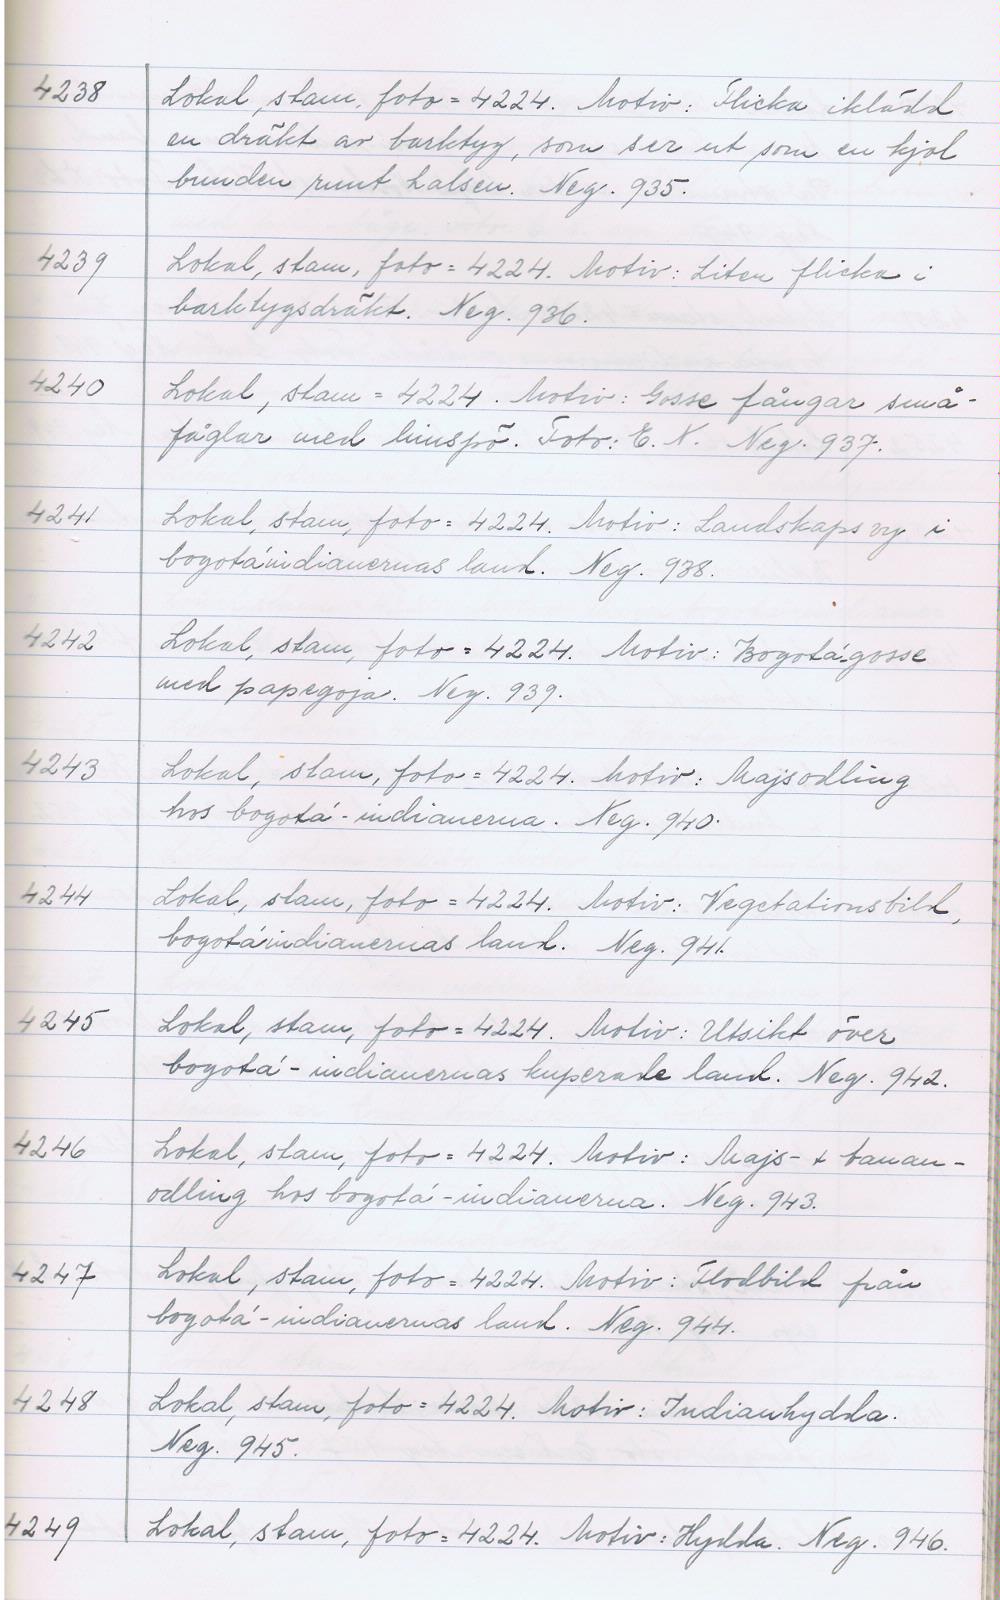 4238 Lokal, stam, foto = 4224. Motiv: Flicka iklädd
en dräkt av barktyg, som ser ut som en kjol
bunden runt halsen. Neg. 935.
4239 Lokal, stam, foto = 4224. Motiv: Liten flicka i
barktygsdräkt. Neg. 936.
4240 Lokal, stam = 4224. Motiv: Gosse fångar små-
fåglar med limspö. Foto: E. N. Neg. 937.
4241 Lokal, stam, foto = 4224. Motiv: Landskapsvy i
bogotáindianernas land. Neg. 938.
4242 Lokal, stam, foto = 4224. Motiv: Bogotá-gosse
med papegoja. Neg. 939.
4243 Lokal, stam, foto = 4224. Motiv: Majsodling
hos bogotá-indianerna. Neg. 940.
4244 Lokal, stam, foto = 4224. Motiv: Vegetationsbild,
bogotáindianernas land. Neg. 941.
4245 Lokal, stam, foto = 4224. Motiv: Utsikt över
bogotá-indianernas kuperade land. Neg. 942.
4246 Lokal, stam, foto = 4224. Motiv: Majs- + banan-
odling hos bogotá-indianerna. Neg. 943.
4247 Lokal, stam, foto = 4224. Motiv: Flodbild från
bogotá-indianernas land. Neg. 944.
4248 Lokal, stam, foto = 4224. Motiv: Indianhydda.
Neg. 945.
4249 Lokal, stam, foto = 4224. Motiv: Hydda. Neg. 946.